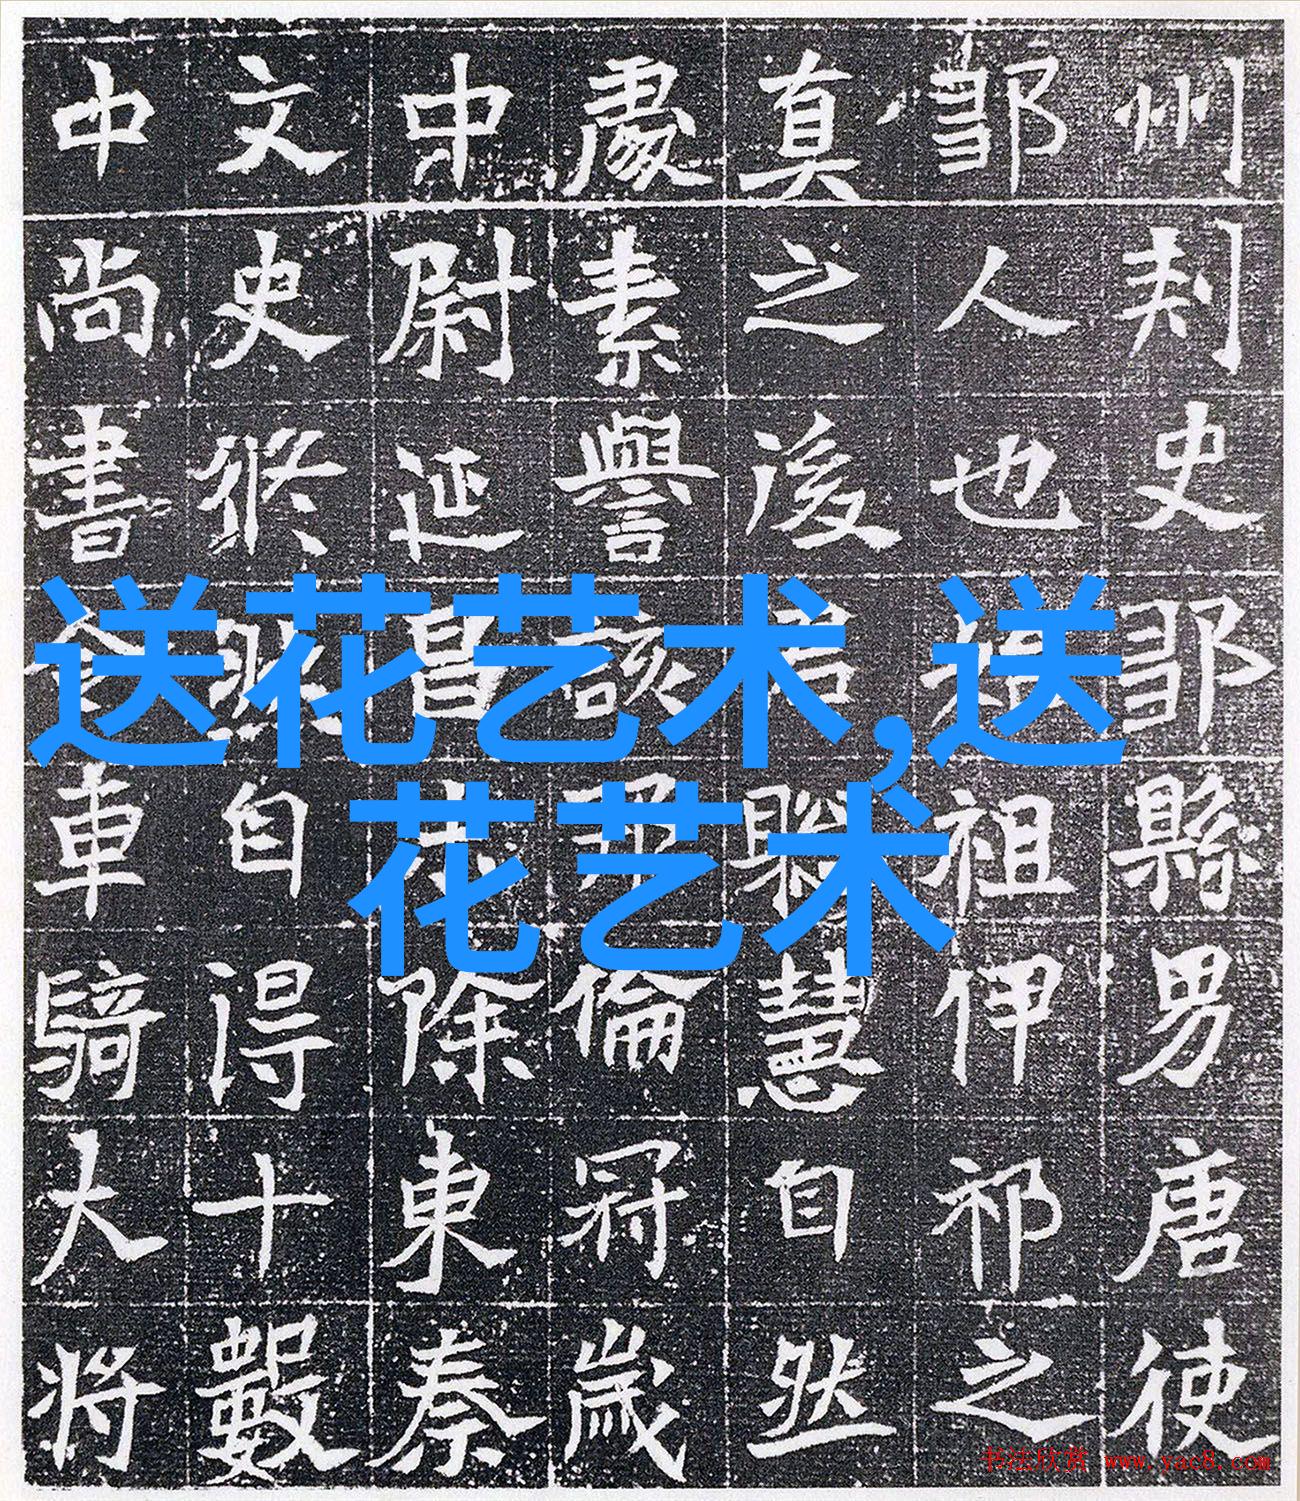 州刾史邹縣男唐使
邹人也祖伊祁之
真之後君聰慧自然
處素譽該倫冠歲
中尉延昌除東秦
文史脩自得十數
中尚書車騎大將
送花艺术,送
花艺术
书法欣赏 www.yac8.com